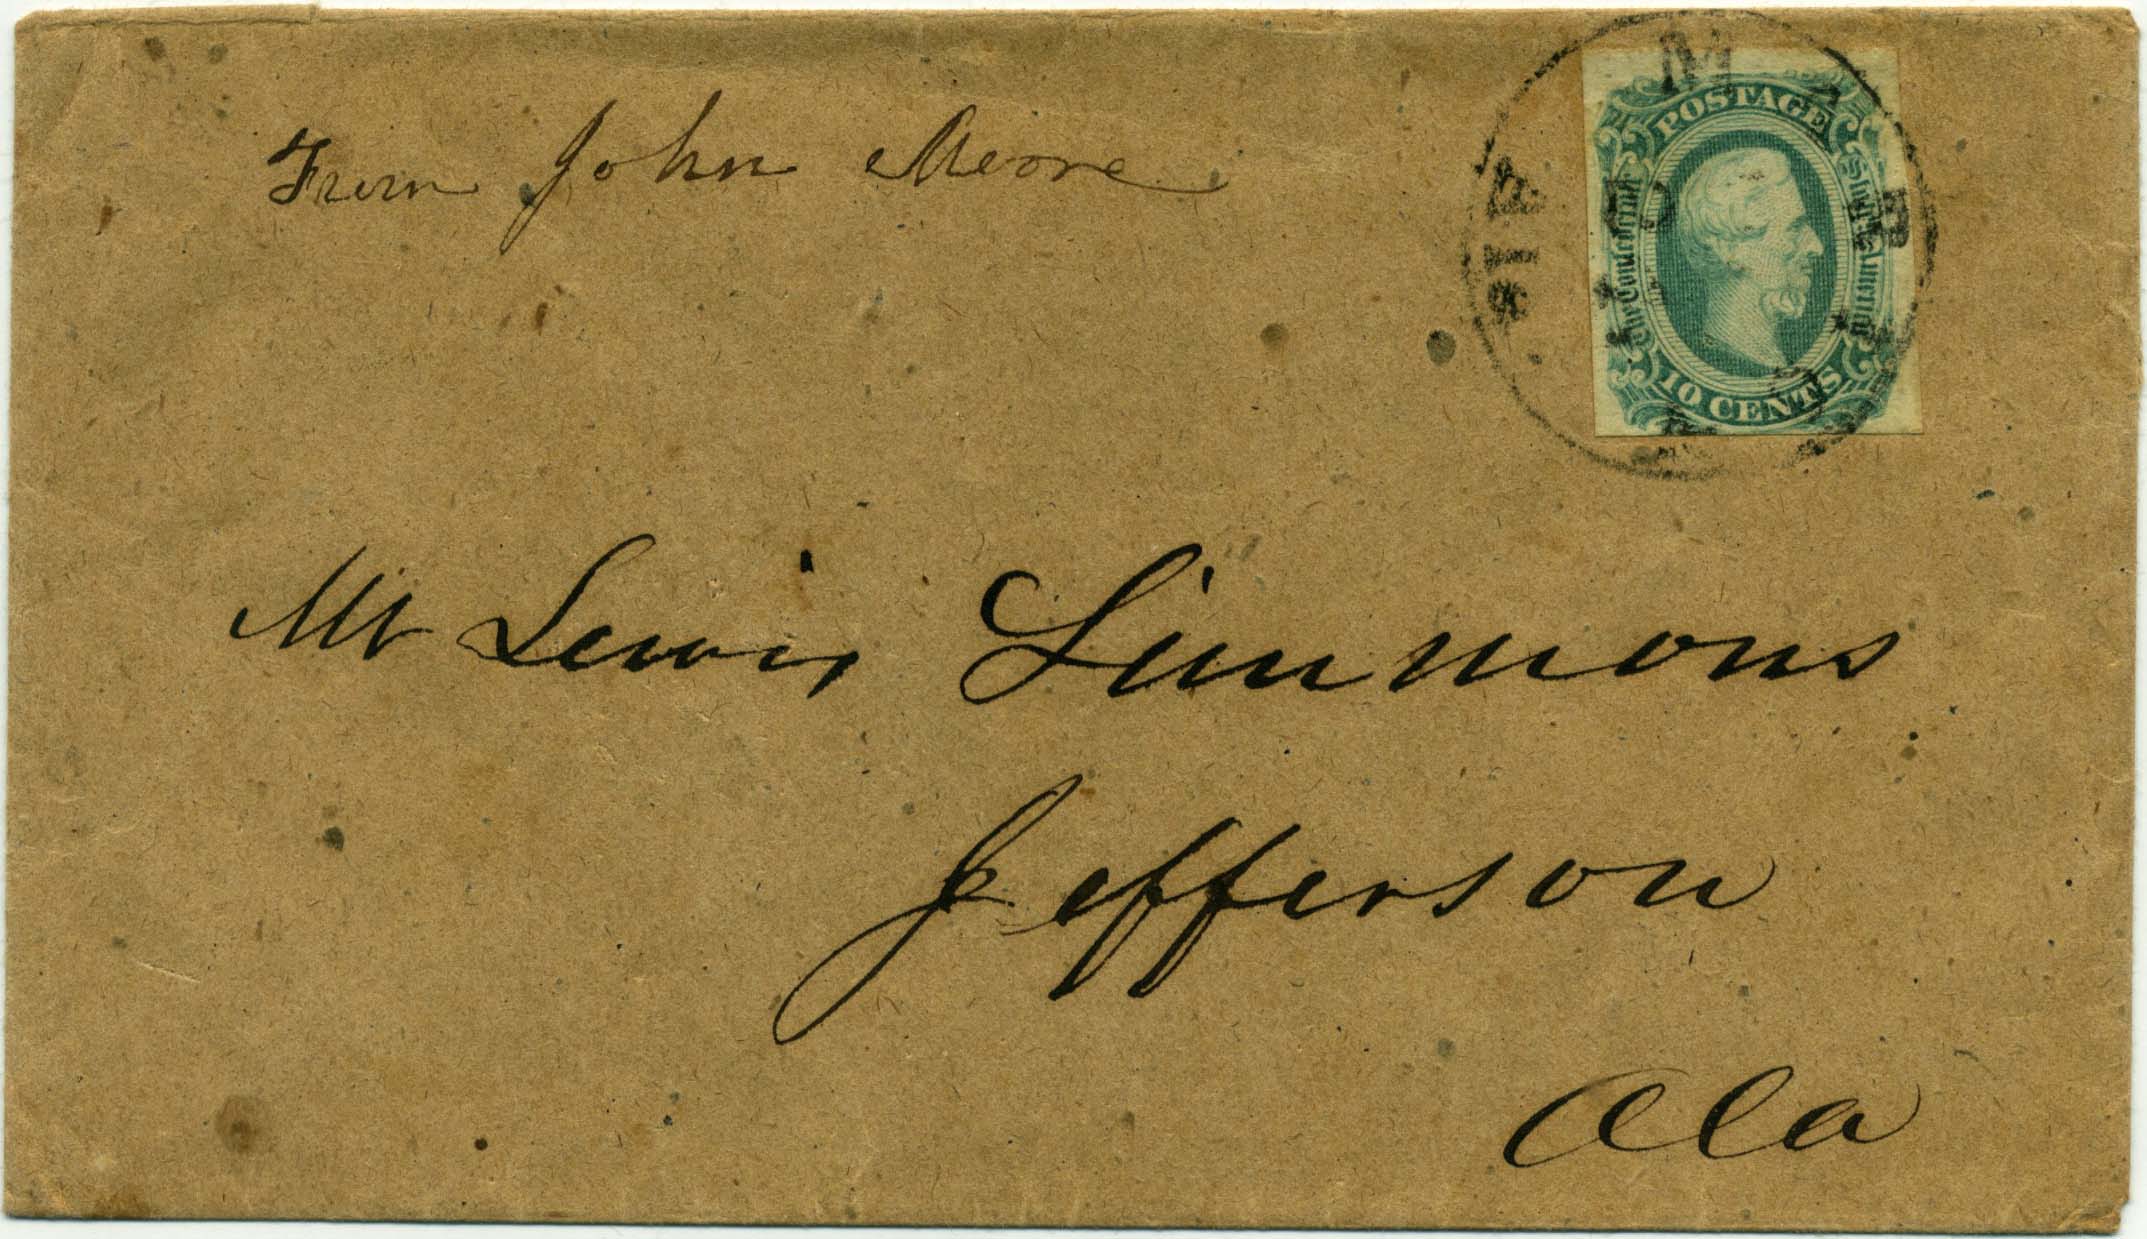 From John Moore
POSTAGE
The Confederate States of America
10 CENTS
Mr Lewis Simmons
Jefferson
Ala